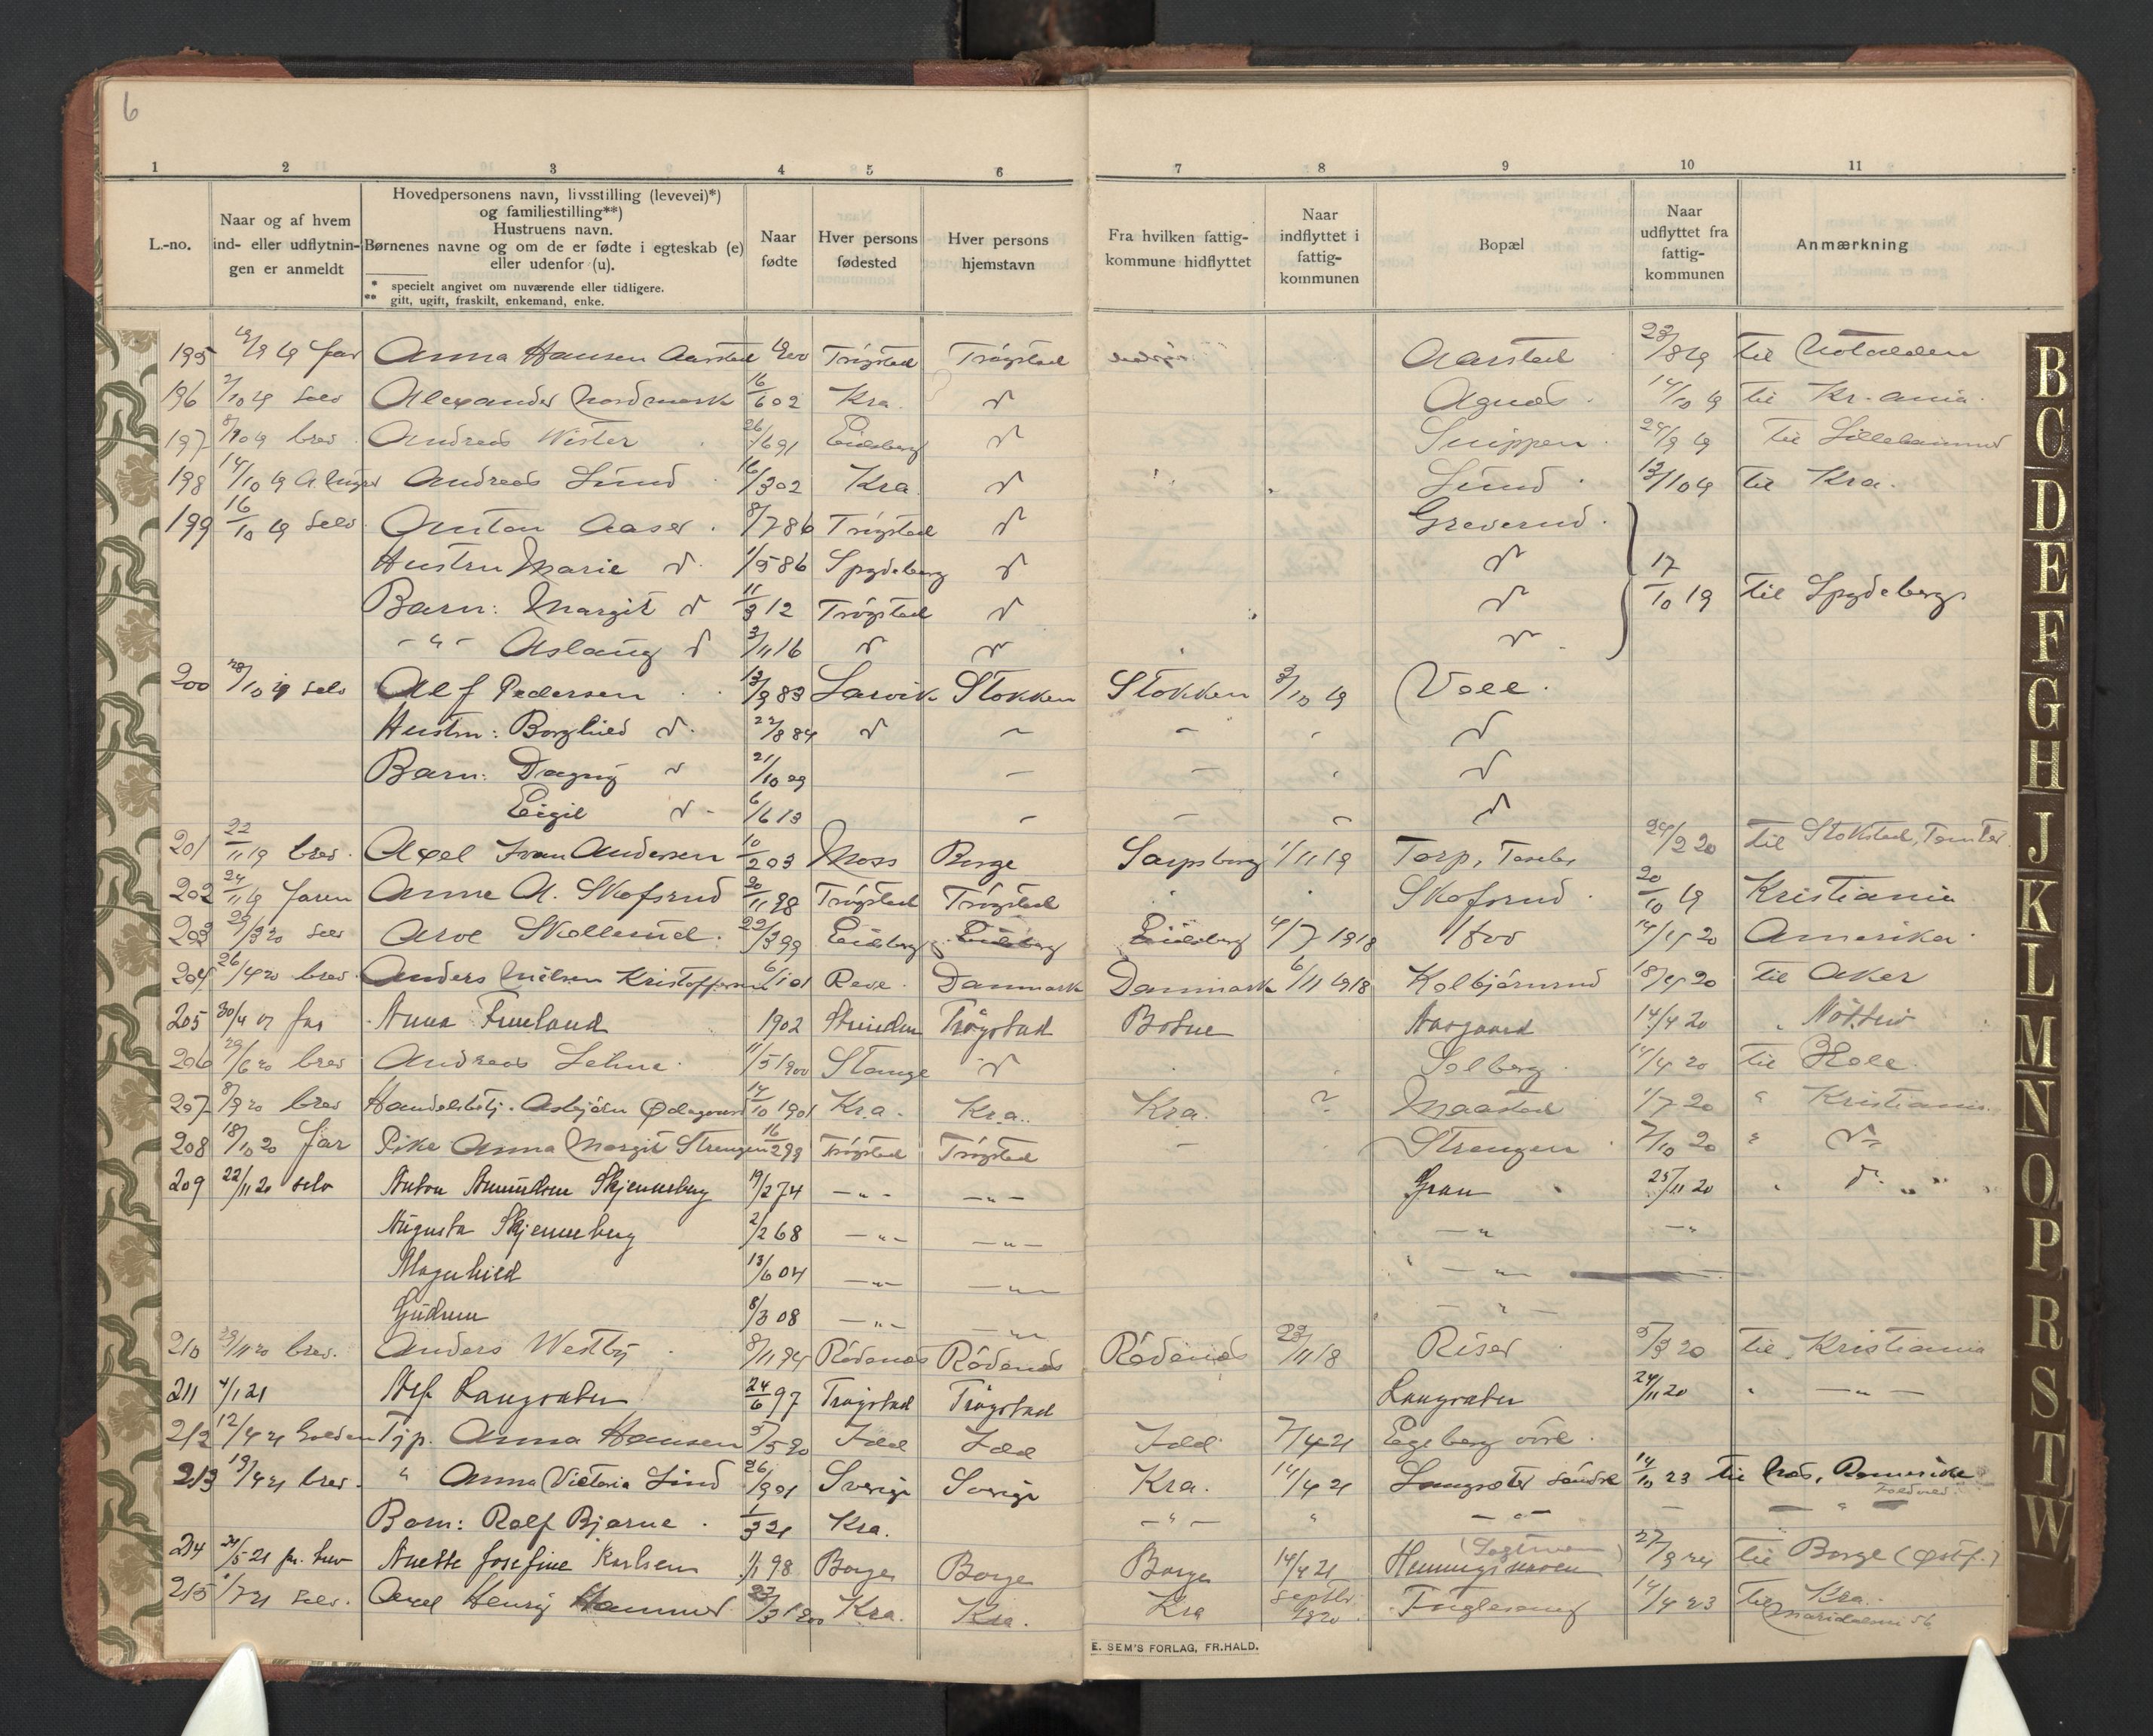 6
1 2 3 4 5 6 7 8 9 10 11
L.-no.
Naar og af hvem
ind- eller udflytnin-
gen er anmeldt
Hovedpersonens navn, livsstilling (levevei)*)
og familiestilling**)
Hustruens navn.
Børnenes navne og om de er fødte i egteskab (e)
eller udenfor (u).
* specielt angivet om nuværende eller tidligere.
** gift, ugift, fraskilt, enkemand, enke.
Naar
fødte
Hver persons
fødested
Hver persons
hjemstavn
Fra hvilken fattig-
kommune hidflyttet
Naar
indflyttet i
fattig-
kommunen
Bopæl
Naar
udflyttet fra
fattig-
kommunen
Anmærkning
195 far Anna Hansen Aarstad 1900 Trögstad Trögstad Aarstad 23/8 19 til Notodden
196 2/10 19 selv Alexander Nordmark 16/6 02 Kra. Agnes 14/10 19 til Kr.ania.
197 8/10 19 brev Andreas Wister 26/6 91 Eidsberg Snippen 24/9 19 til Lillehammer
198 14/10 19 Andreas Lund 16/3 02 Kra. Lund 13/10 19 til Kra.
199 16/10 19 selv Anton Aaser 8/7 86 Trögstad Greverud
Hustru Marie 1/5 86 Spydeberg 17/10 19 til Spydeberg
Barn: Margit 11/3 12 Trögstad
-"- Aslaug 3/11 16
200 28/10 19 selv Alf Pedersen 13/9 83 Larvik Stokken Stokken 3/10 19 Voll
Hustru: Borghild 22/8 84
Barn: Dagny 21/10 09
Eigil 6/6 13
201 22/11 19 brev Axel Ivan Andersen 10/2 03 Moss Borge Sarpsborg 1/11 19 Torp, 24/2 20 til Stokstad, Tomter
202 24/11 19 faren Anne A. Skofsrud 20/11 98 Trögstad Trögstad Skofsrud 20/10 19 Kristiania
203 29/3 20 selv Arve Skollerud 22/3 99 Eidsberg Eidsberg Eidsberg 4/7 1918 14/4 20 Amerika
204 26/4 20 brev Anders Nielsen Kristoffersen 6/1 01 Danmark Danmark 6/11 1918 Kolbjörnsrud 18/4 20 til Aker
205 30/4 far Anna 1902 Trögstad Botne Aasgaard 14/4 20 " Nötterö
206 29/6 20 brev Andreas 11/5 1900 Stange Solberg 14/4 20 til Hole
207 8/9 20 brev Handelsbetj. Asbjörn Ødegaard 14/10 1901 Kra. Kra. Kra. ? Maastad 1/7 20 " Kristiania
208 18/10 20 far Pike Anna Margit Strengen 16/2 99 Trögstad Trögstad - Strengen 7/10 20 "
209 22/11 20 selv Anton Amundsen Skjenneberg 19/2 74 -"- -"- Grav 25/11 20 "
Augusta Skjenneberg 2/2 68 -"- -"- -"- -"
Magnhild 13/6 04 -"- -"- -"-
Gudrun 8/3 08 -"- -"- -"-
210 29/11 20 brev. Anders Westby 8/11 94 Rödenes Rödenes Rödenes 23/11 18 Riser 5/3 20 til Kristiania
211 4/1 21 Alf Langsæter 24/6 97 Trögstad Trögstad Langsæter 24/11 20 " -"-
212 12/4 21 Tjp. Anna Hansen 5/5 90 Idd Idd Idd 7/4 21 Egeberg övre
213 19/4 21 brev. " Anna Victoria Lind 26/9 01 Sverige Sverige Kra. 14/4 21 Langsæter söndre 14/10 23 til Aas, Romerike
Barn: Rolf Bjarne 1/3 21 Kra. -"- " -"- - "
214 24/5 21 Anette Josefine Karlsen 1/1 98 Borge Borge Borge 14/4 21 27/9 21 til Borge (Østf.)
215 1/7 21 selv. Axel Henry Hammer 23/3 1900 Kra. Kra. Kra septbr. 1920 Fuglesang 14/4 23 til Kra.
Maridalsvn 56
E. SEM'S FORLAG, FR.HALD.
B
C
D
E
F
G
H
J
K
L
M
N
O
P
R
S
T
W